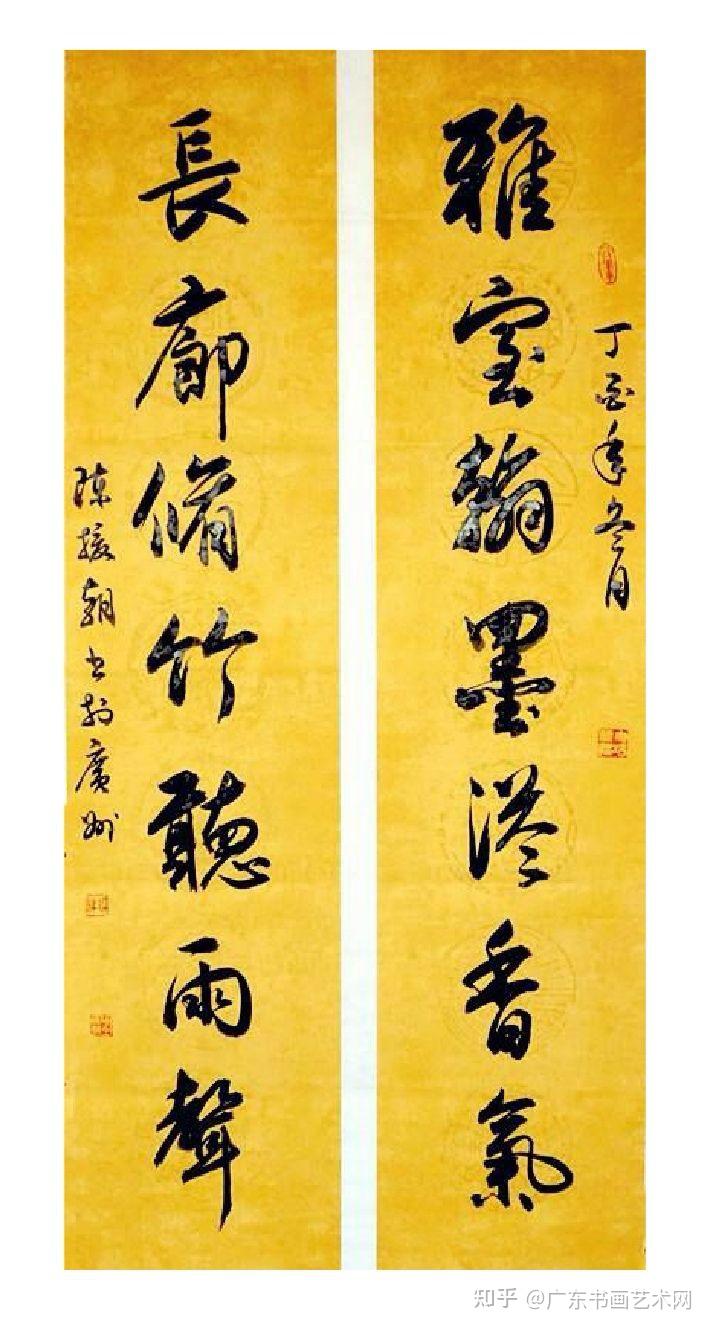 雅室翰墨溢香氣
丁酉年冬月
長廊脩竹聽雨聲
陳援朝書於廣州
知乎 @广东书画艺术网